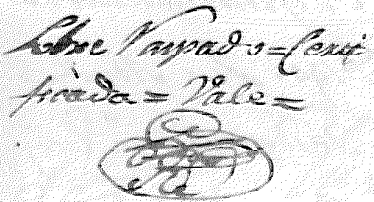 Sobre Raspado = Certi
ficada = Vale =